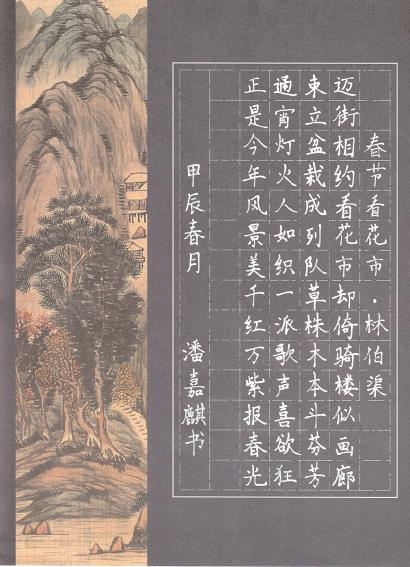 春节看花市·林伯渠
迈街相约看花市却倚骑楼似画廊
束立盆栽成列队草株木本斗芬芳
通宵灯火人如织一派歌声喜欲狂
正是今年风景美千红万紫报春光
甲辰春月 潘嘉麒书